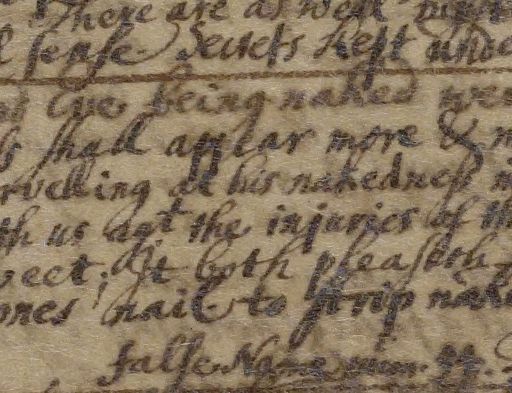 There are as well
l sense. Secrets kept unde
Eve being naked wer
s shall appear more & m
rvelling at his nakedness
th us not the injuries of th
weet; It both pleaseth
ones nail to strip nak
false Name num. 44.